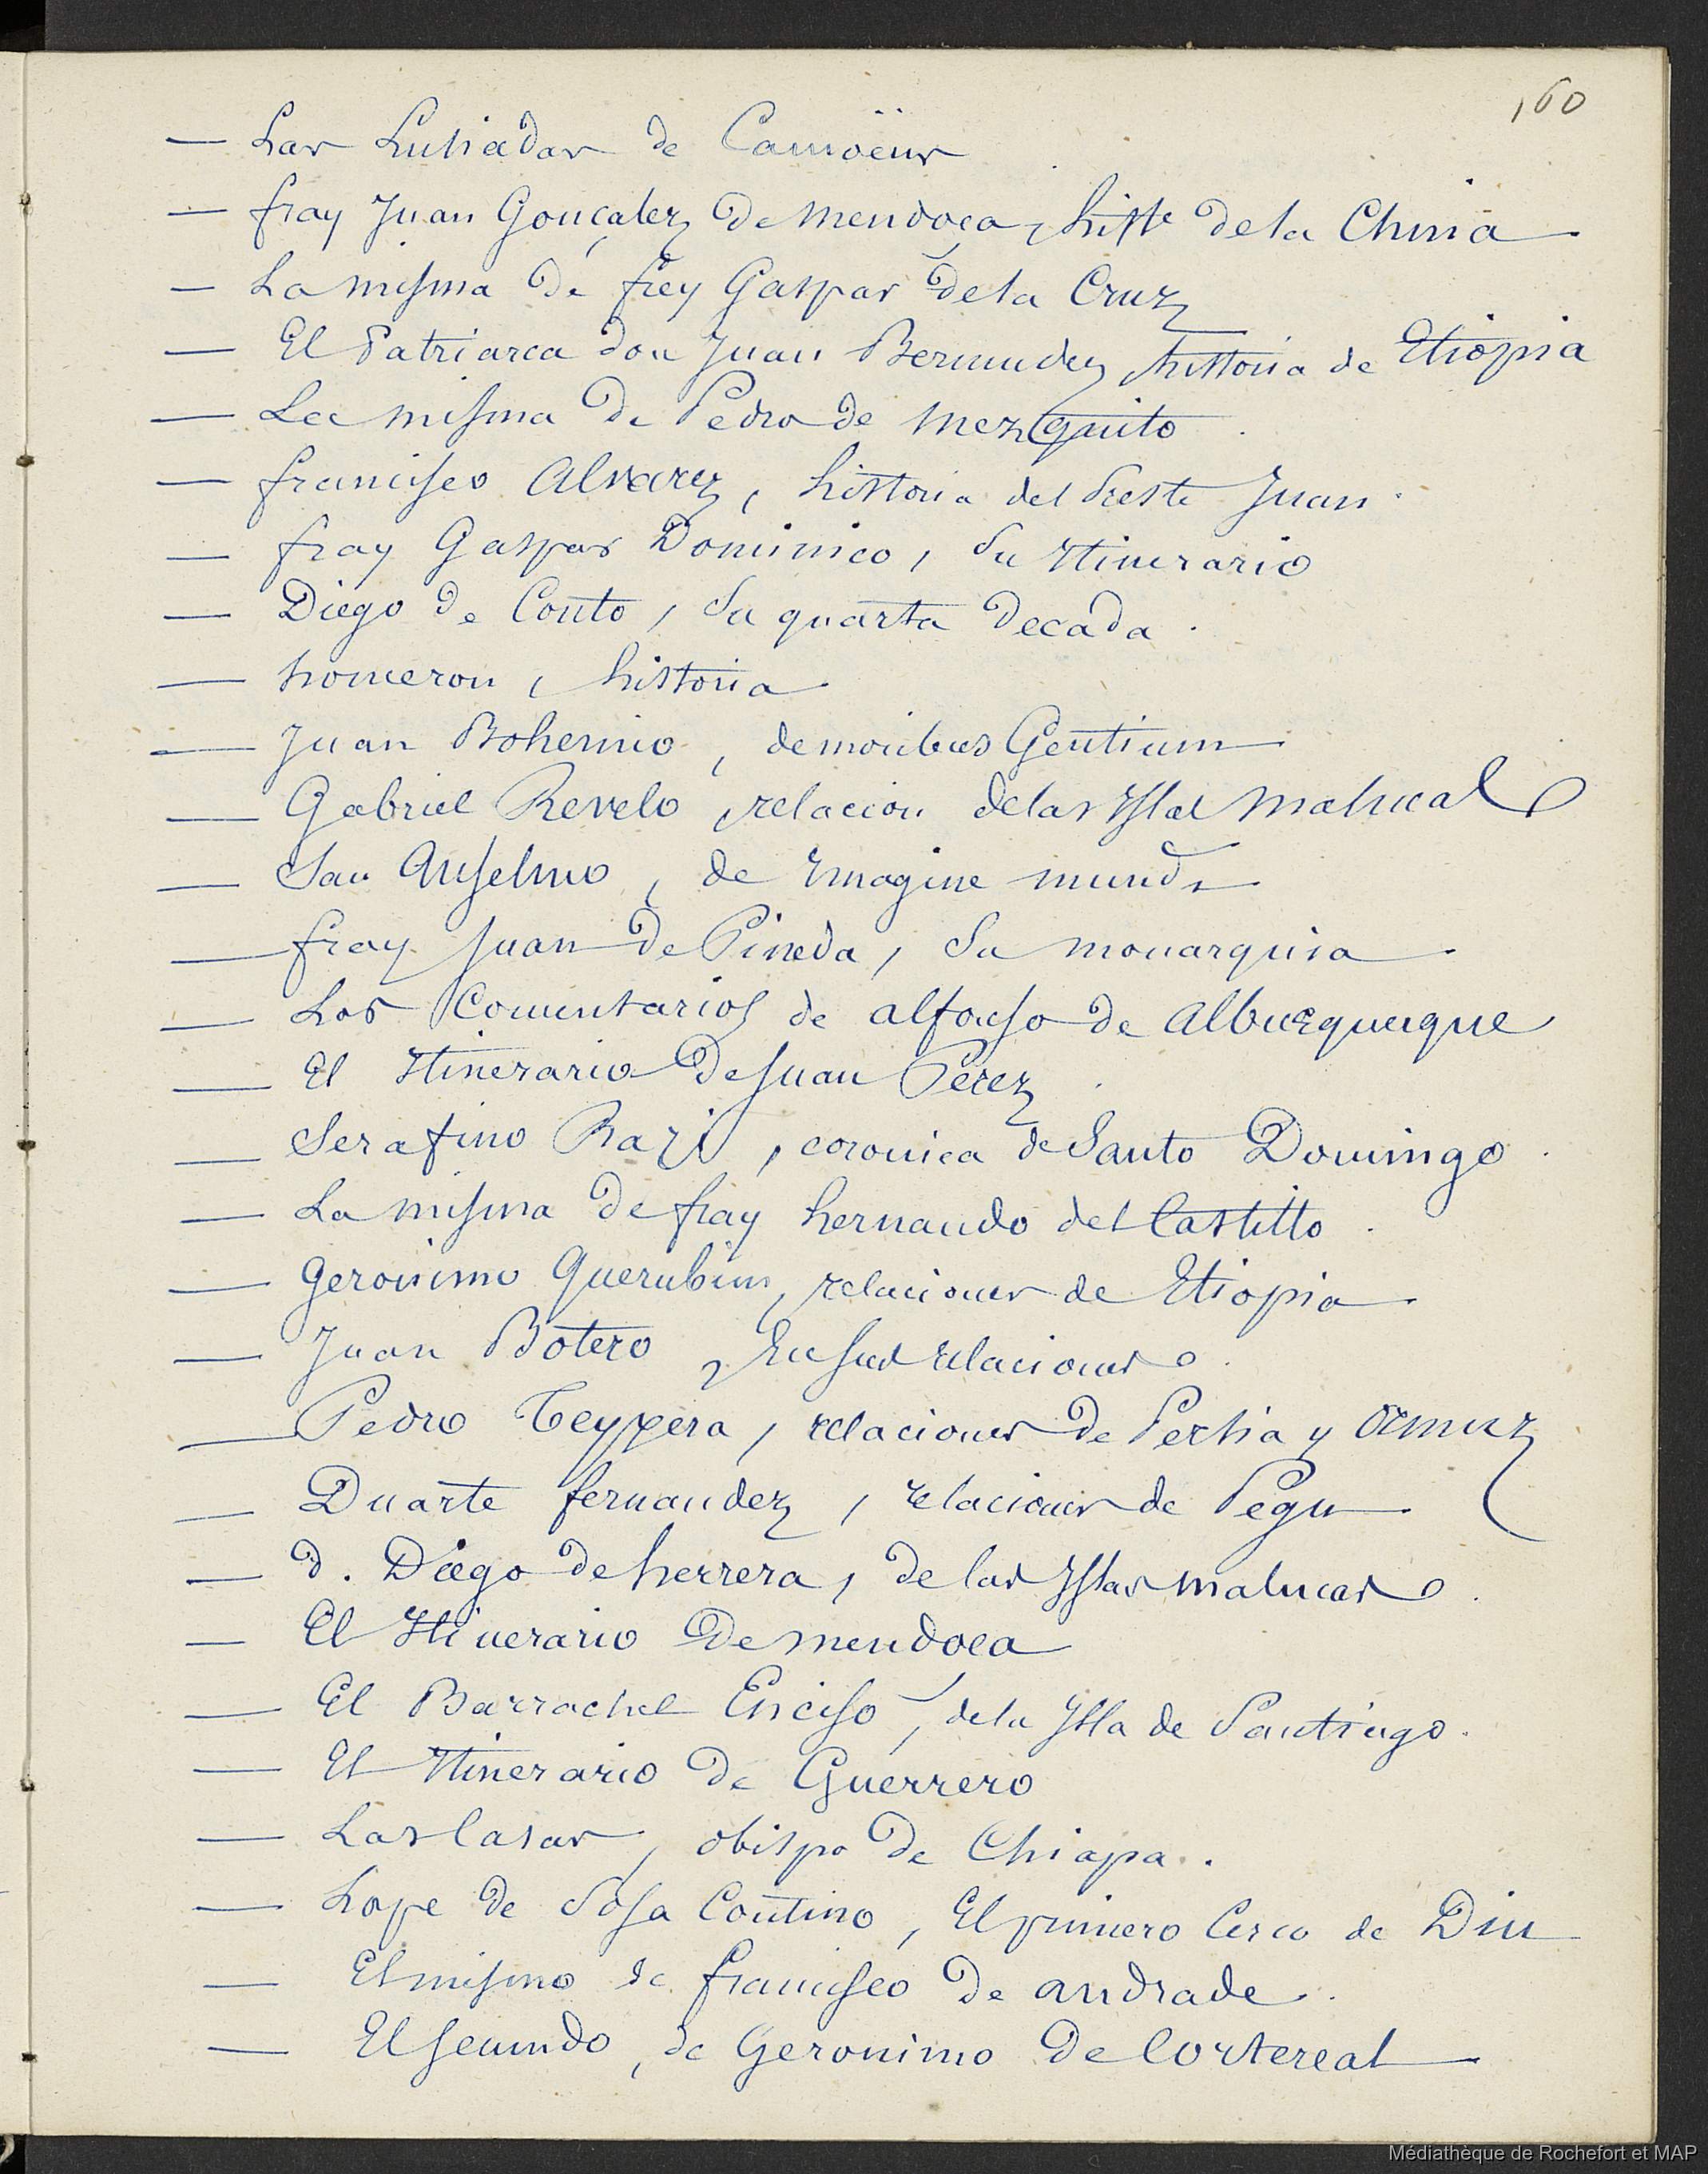 160
— Las Lusiadas de Camoëns
— fray Juan Gonçalez de mendoça, histe dela China
— La misma de frey Gaspar dela Cruz
— El Patriarca don Juan Bermudez, historia de Etiopia
— La misma de Pedro de mezquito.
— francisco Alvarez, historia del Preste Juan.
— fray Gaspar Dominico, Su Itinerario
— Diego de Couto, Su quarta Decada.
— homeron, historia
— Juan Bohemio, demoribus Gentium
— Gabriel Revelo, relacion delas Yslas malucas
— San Anselmo, de Ymagine mundi
— fray Juan de Pineda, Su monarquia
— Los Comentarios de alfonso de Alburquerque
— El Itinerario de Juan Perez.
— Serafino Razi, coronica de Santo Domingo.
— La misma de fray hernando del Castillo.
— Geronimo Querubim, relaciones de Etiopia
— Juan Botero, En sus relaciones.
— Pedro Teyxera, relaciones de Persia y Ormuz
— Duarte fernandez, relaciones de Pegu
— d. Diego de herrera, de las Yslas malucas.
— El Itinerario de mendoca
— El Barrachel Enciso, dela Ysla de Santiago.
— El Itinerario de Guerrero
— Las Casas, obispo de Chiapa.
— Lope de Sosa Coutino, El primero Cerco de Diu
— El mismo de francisco de andrade.
— El segundo, de Geronimo de Cortereal
Médiathèque de Rochefort et MAP